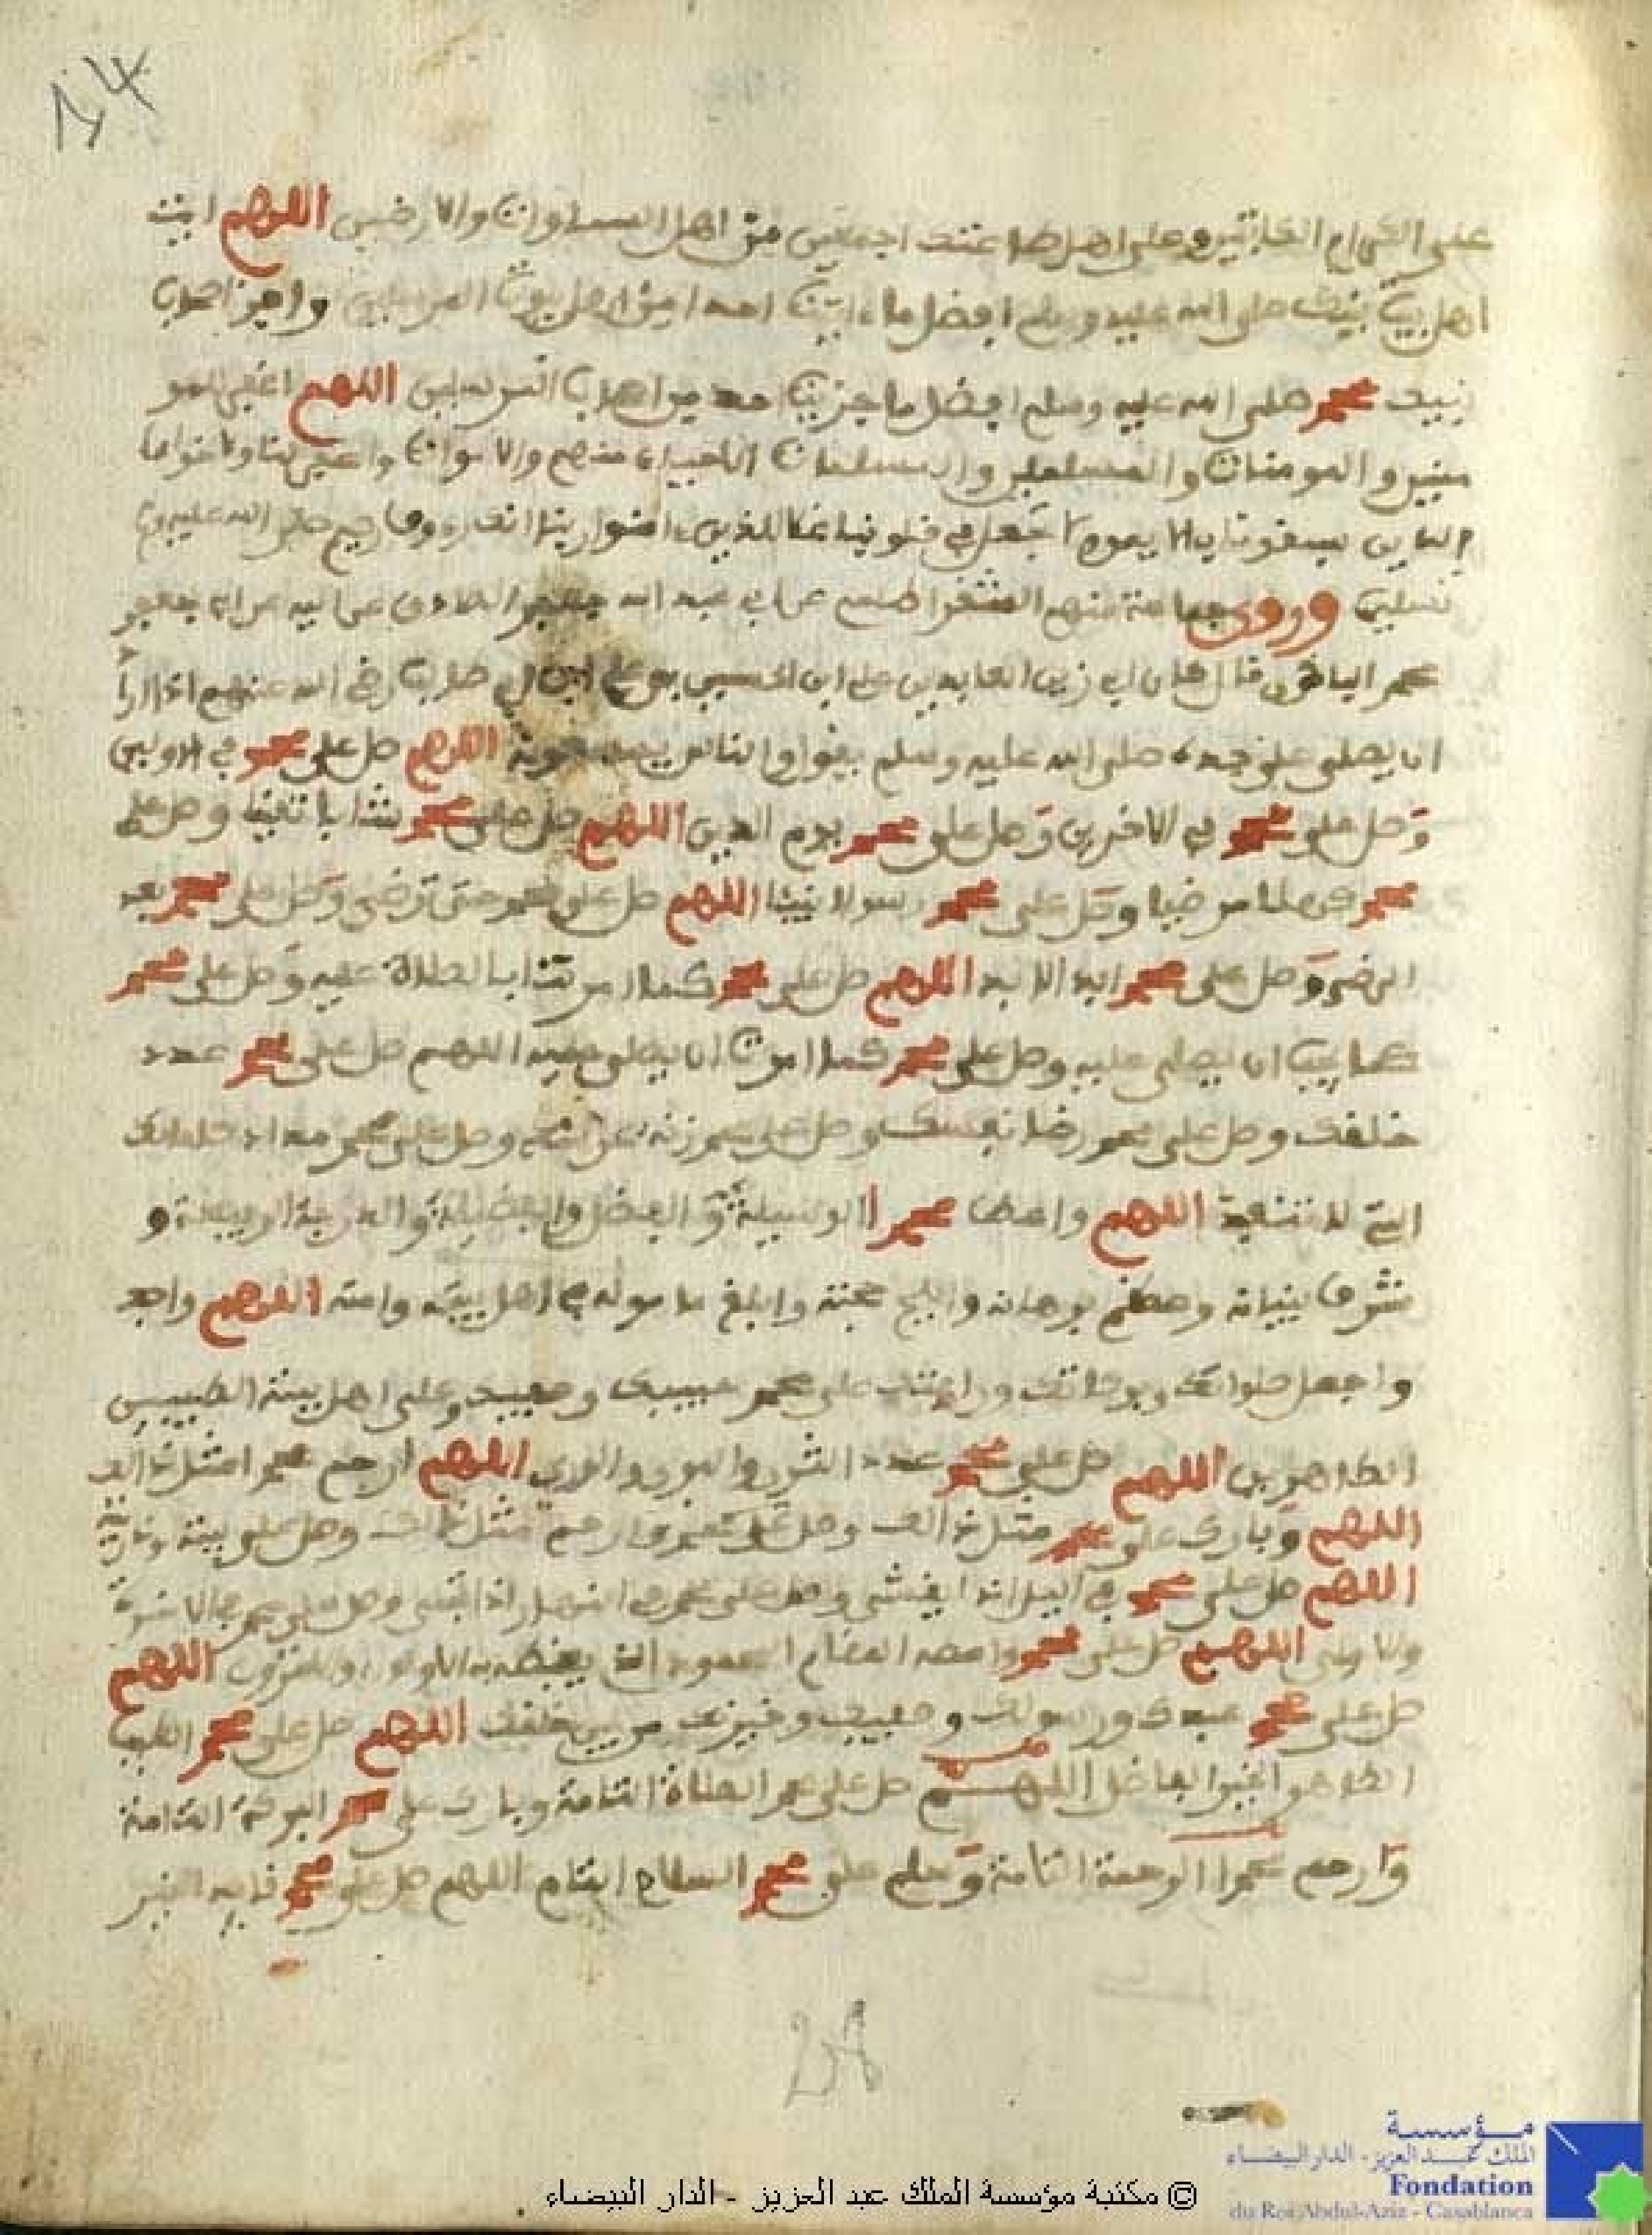 على الكرام الكاتبين وعلى اهل طاعتك اجمعين من اهل السماوات والارضين اللهم ايت
اهل بيت نبيك صلى الله عليه وسلم افضل ما ايت احدا من اهل بيوت المرسلين واجز اصحاب
نبيك محمد صلى الله عليه وسلم افضل ما جزيت احد من اصحاب المرسلين اللهم اغفر للمو
منين والمومنات والمسلمين والمسلمات الاحياء منهم والاموات واغفر لنا ولاخواننا
الذين سبقونا بالايمان ولا تجعل في قلوبنا غلا للذين ءامنوا ربنا انك رءوف رحيم صلى الله عليه
تسليما وروى جماعة منهم عن ابي عبد الله جعفر الصادق عن ابيه عن ابي جعفر
محمد الباقر قال كان ابي زين العابدين علي ابن الحسين بن علي ابن ابي طالب رضي الله عنهم اذا اراد
ان يصلي على جده صلى الله عليه وسلم يقول والناس يسمعونه اللهم صل على محمد في الاولين
وصل على محمد في الاخرين وصل على محمد يوم الدين اللهم صل على محمد شابا وصل على
محمد كهلا مرضيا وصل على محمد رسولا نبيئا اللهم صل على محمد حتى ترضى وصل على محمد بعد
الرضى وصل على محمد ابدا الابد اللهم صل على محمد كما امرتنا بالصلاة عليه وصل على محمد
كما يجب ان يصلى عليه وصل على محمد كما امرت ان يصلى عليه اللهم صل على محمد عدد
خلقك وصل على محمد رضا نفسك وصل على محمد زنة عرشك وصل على محمد مداد كلماتك
التي لا تنفد اللهم واعط محمدا الوسيلة والفضل والفضيلة والدرجة الرفيعة و
شرف بنيانه وعظم برهانه وابلج حجته وابلغ مأموله في اهل بيته وامته اللهم واجعل
واجعل صلواتك وبركاتك ورافتك على محمد حبيبك وصفيك وعلى اهل بيته الطيبين
الطاهرين اللهم صل على محمد عدد الثرى والورى اللهم ارحم محمدا مثل ذالك
اللهم وبارك على محمد مثل ذالك وصل على مثل ذالك وصل على بيته وذريته
اللهم صل على محمد في اليل اذا يغشى وصل على محمد في النهار اذا تجلى وصل على محمد في الاخرة
والاولى اللهم صل على محمد واعطه المقام المحمود الذي يغبطه به الاولون والاخرون اللهم
صل على محمد عبدك ورسولك وصفيك وخيرتك من خلقك اللهم صل على محمد الطيب
الطاهر الفاضل اللهم صل على محمد الصلاة التامة وبارك على محمد البركة التامة
وارحم محمدا الرحمة التامة وسلم على محمد السلام التام اللهم صل على محمد قايد الخير
© مكتبة مؤسسة الملك عبد العزيز - الدار البيضاء
مؤسسة
الملك عبد العزيز - الدار البيضاء
Fondation
du Roi Abdul-Aziz - Casablanca